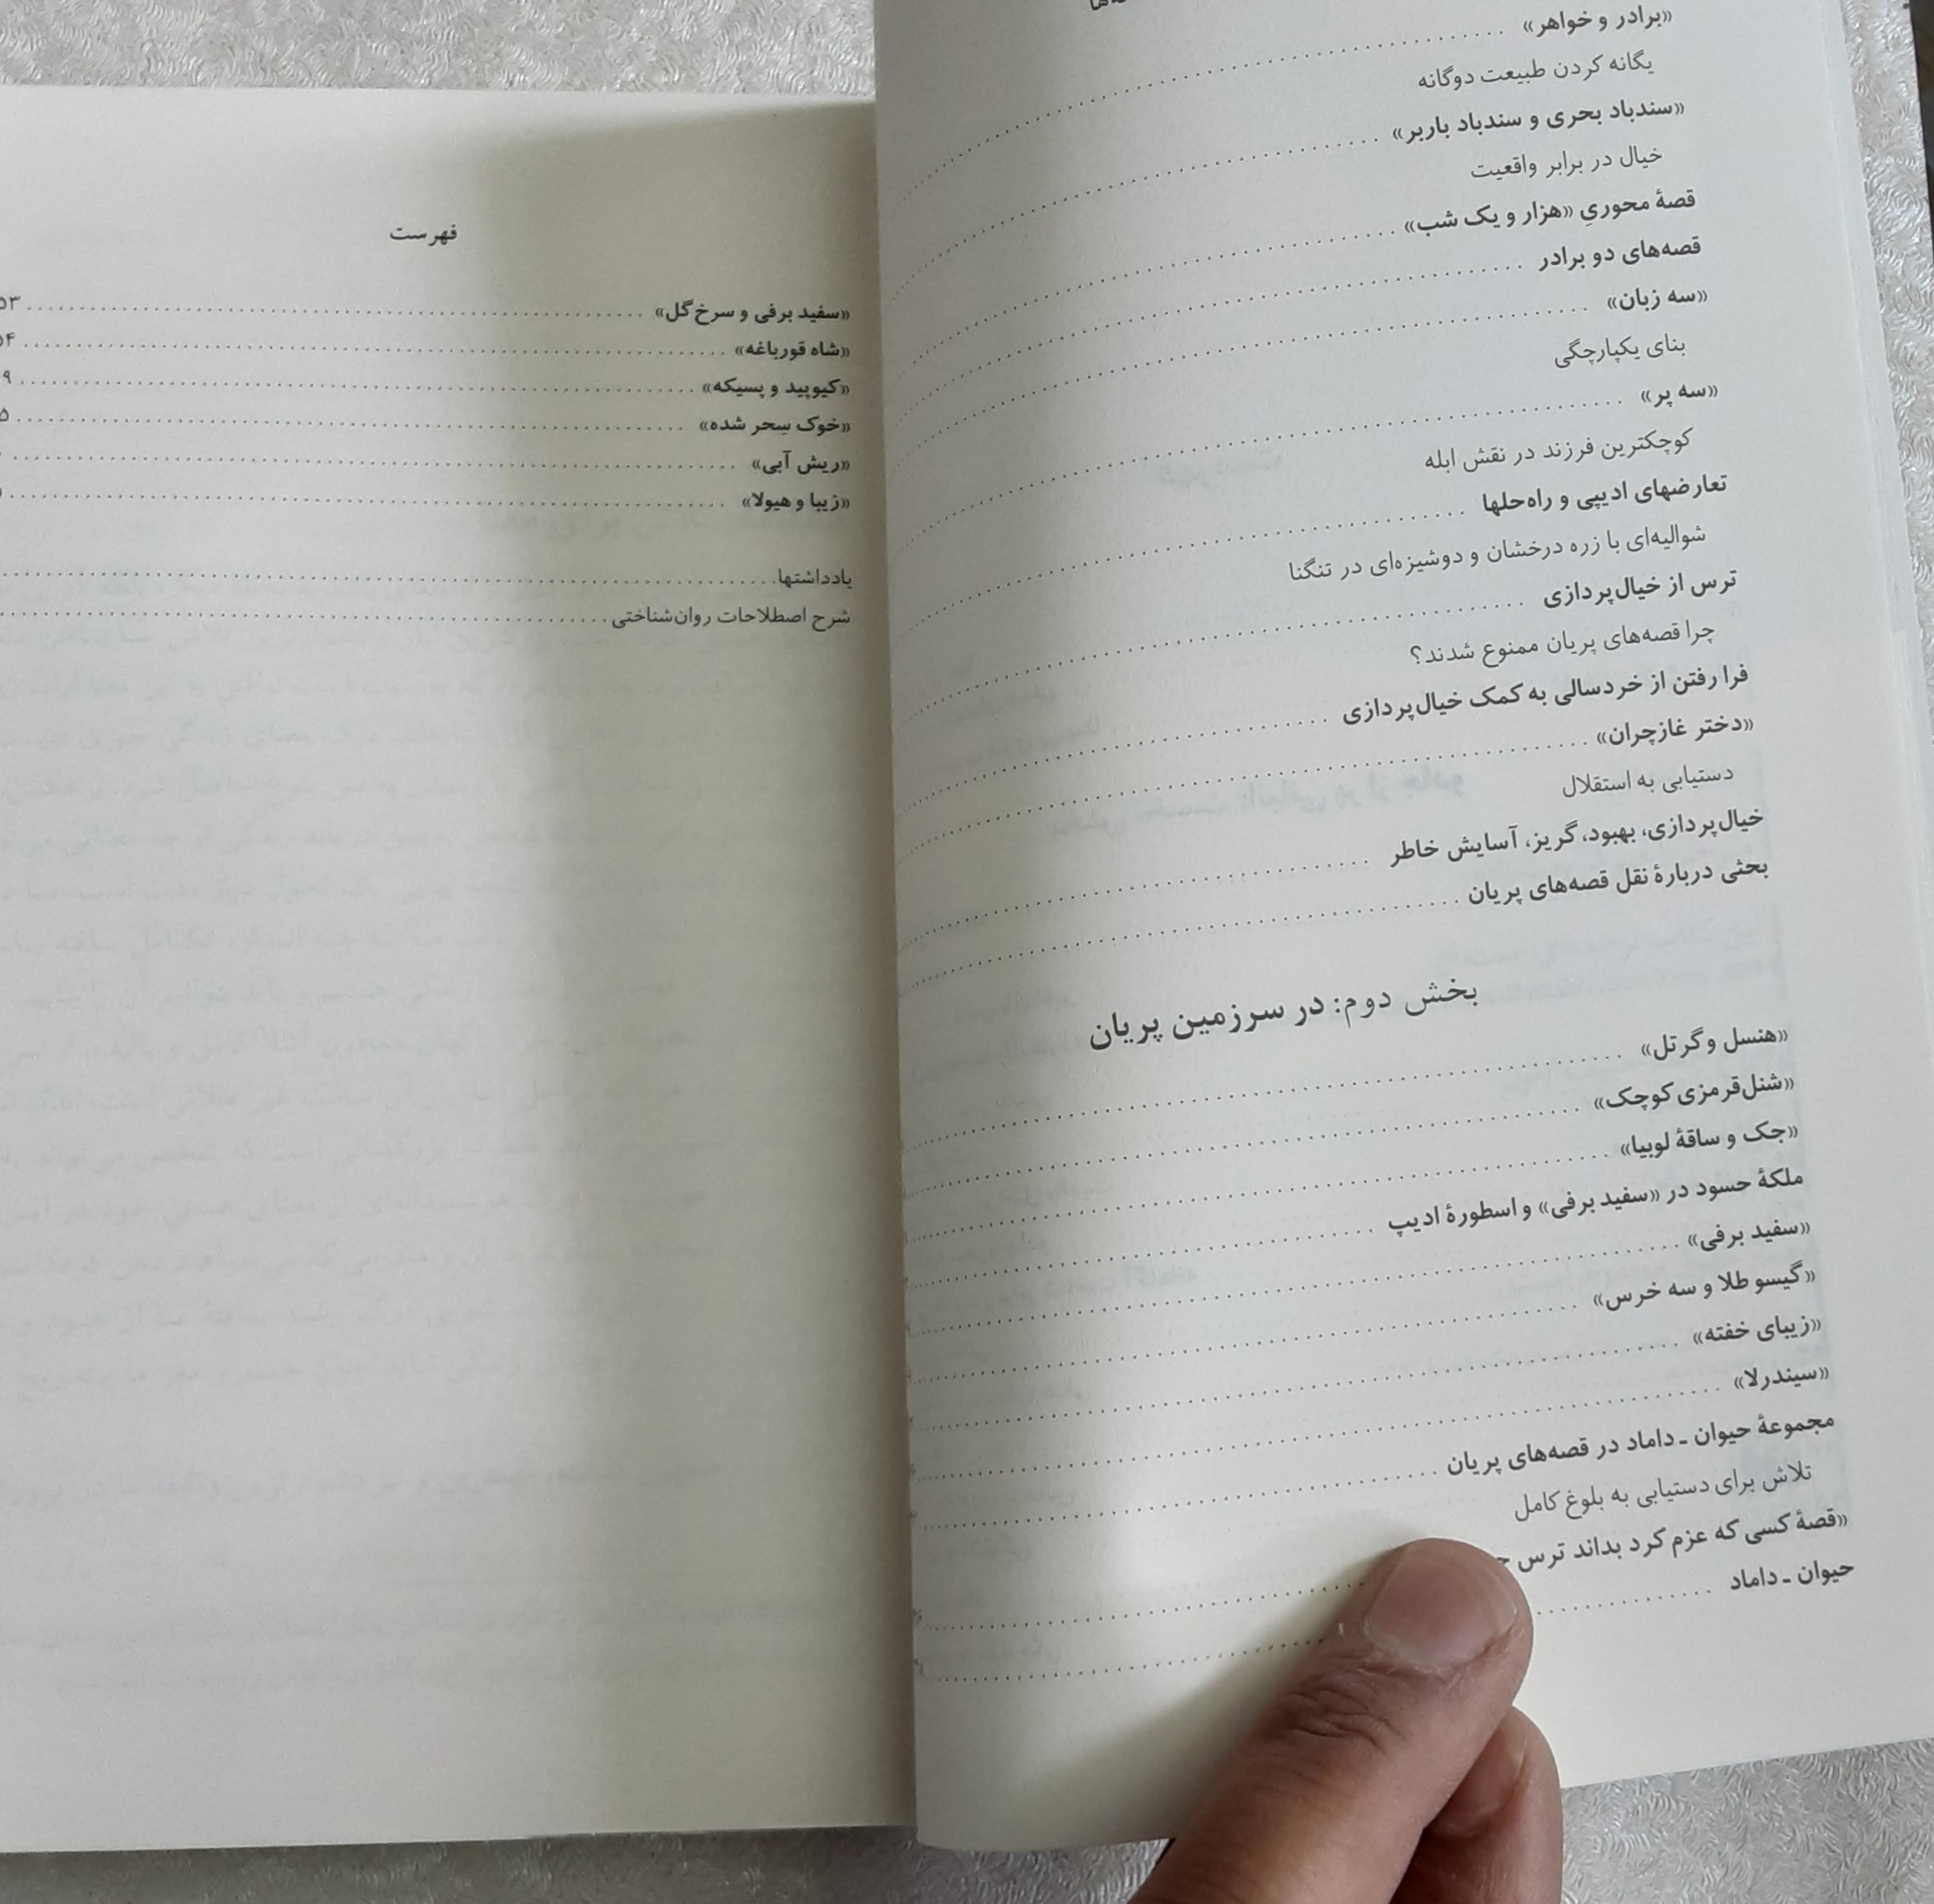 «برادر و خواهر»
یگانه کردن طبیعت دوگانه
«سندباد بحری و سندباد باربر»
خیال در برابر واقعیت
قصهٔ محوریِ «هزار و یک شب»
قصه‌های دو برادر
«سه زبان»
بنای یکپارچگی
«سه پر»
کوچکترین فرزند در نقش ابله
تعارضهای ادیپی و راه‌حلها
شوالیه‌ای با زره درخشان و دوشیزه‌ای در تنگنا
ترس از خیال‌پردازی
چرا قصه‌های پریان ممنوع شدند؟
فرا رفتن از خردسالی به کمک خیال‌پردازی
«دختر غازچران»
دستیابی به استقلال
خیال‌پردازی، بهبود، گریز، آسایش خاطر
بحثی دربارهٔ نقل قصه‌های پریان
بخش دوم: در سرزمین پریان
«هنسل و گرتل»
«شنل‌قرمزی کوچک»
«جک و ساقهٔ لوبیا»
ملکهٔ حسود در «سفید برفی» و اسطورهٔ ادیپ
«سفید برفی»
«گیسو طلا و سه خرس»
«زیبای خفته»
«سیندرلا»
مجموعهٔ حیوان ـ داماد در قصه‌های پریان
تلاش برای دستیابی به بلوغ کامل
«قصهٔ کسی که عزم کرد بداند ترس
حیوان ـ داماد
فهرست
«سفید برفی و سرخ‌گل»
«شاه قورباغه»
«کیوپید و پسیکه»
«خوک سِحر شده»
«ریش آبی»
«زیبا و هیولا»
یادداشتها
شرح اصطلاحات روان‌شناختی